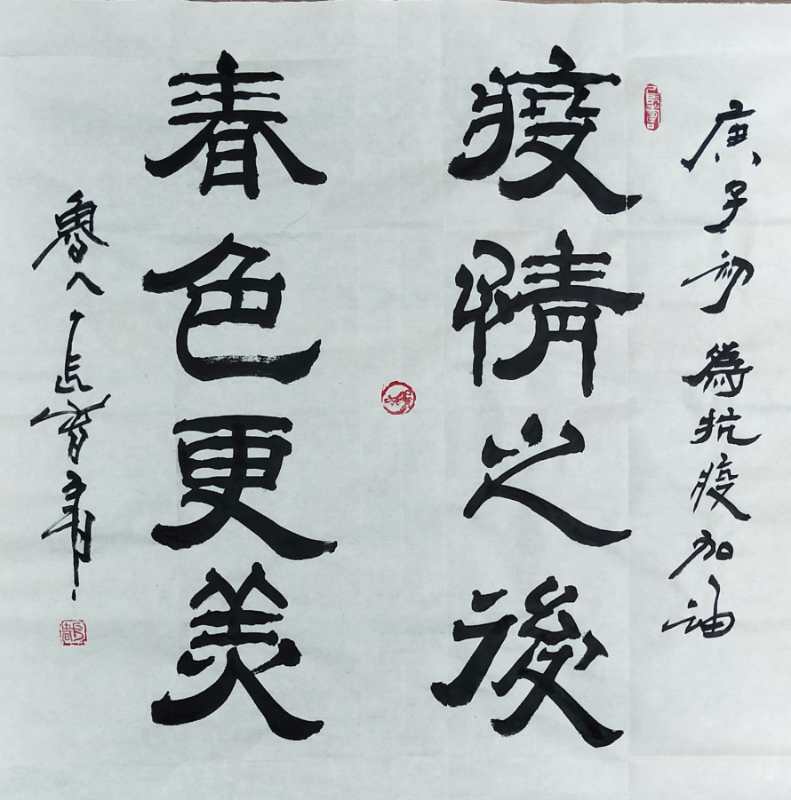 庚子初 為抗疫加油
疫情之後
春色更美
魯人